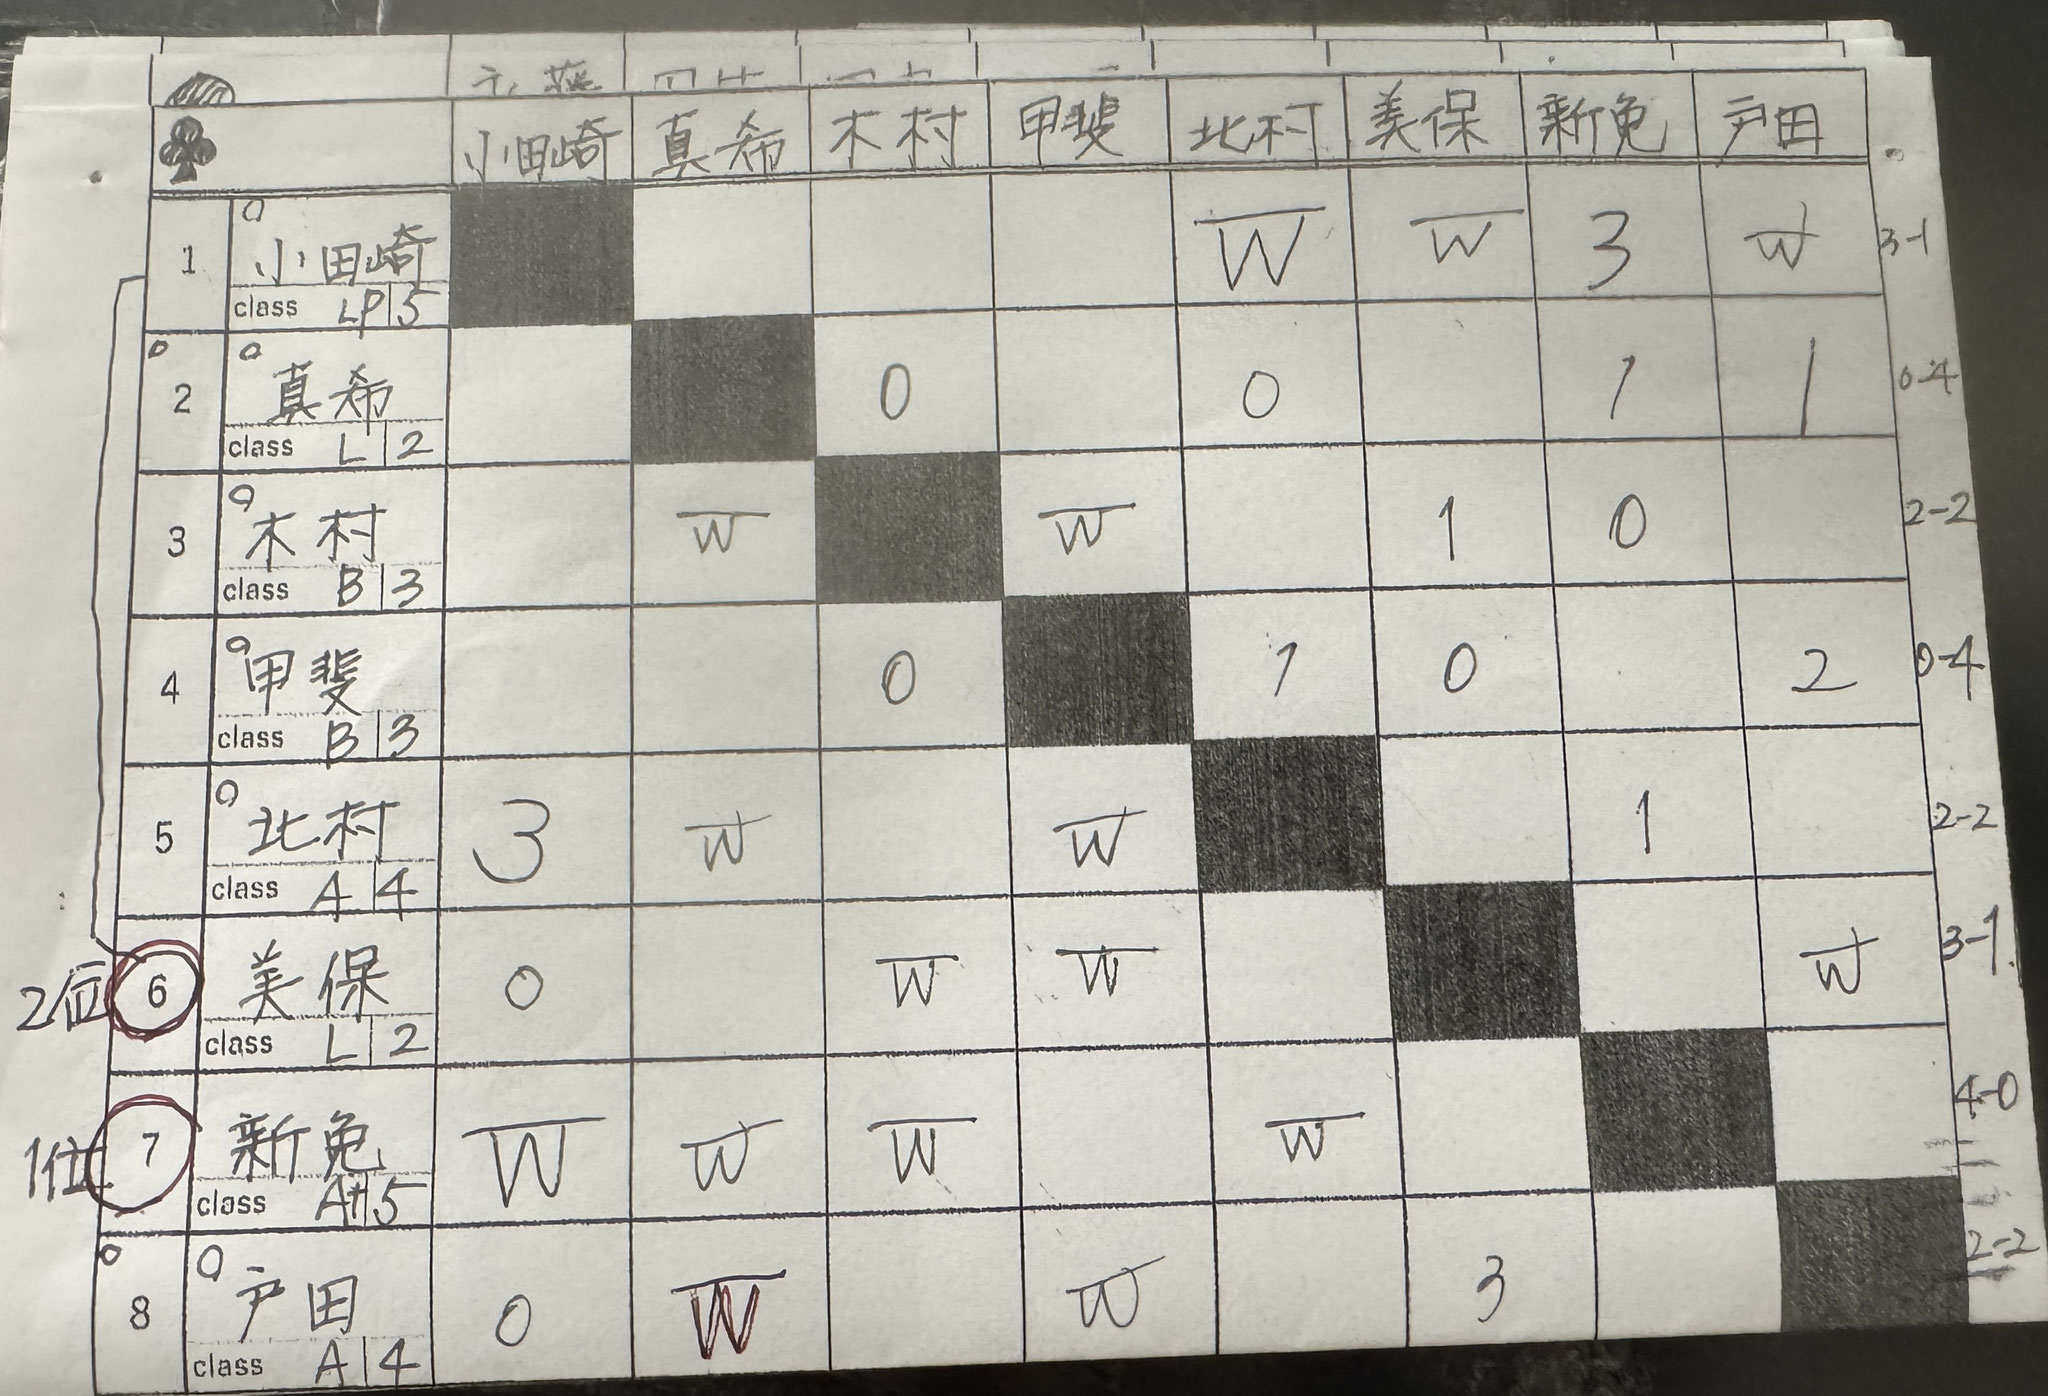 ♣ 小田崎 真希 木村 甲斐 北村 美保 新免 戸田
1 小田崎 W W 3 W 3-1
class LP 5
2 真希 0 0 1 1 0-4
class L 2
3 木村 W W 1 0 2-2
class B 3
4 甲斐 0 1 0 2 0-4
class B 3
5 北村 3 W W 1 2-2
class A 4
2位 6 美保 0 W W W 3-1
class L 2
1位 7 新免 W W W W 4-0
class A+ 5
8 戸田 0 W W 3 2-2
class A 4